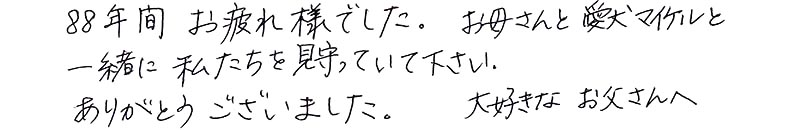 88年間 お疲れ様でした。 お母さんと 愛犬マイケルと
一緒に 私たちを見守っていて下さい.
ありがとう ございました。 大好きな お父さんへ